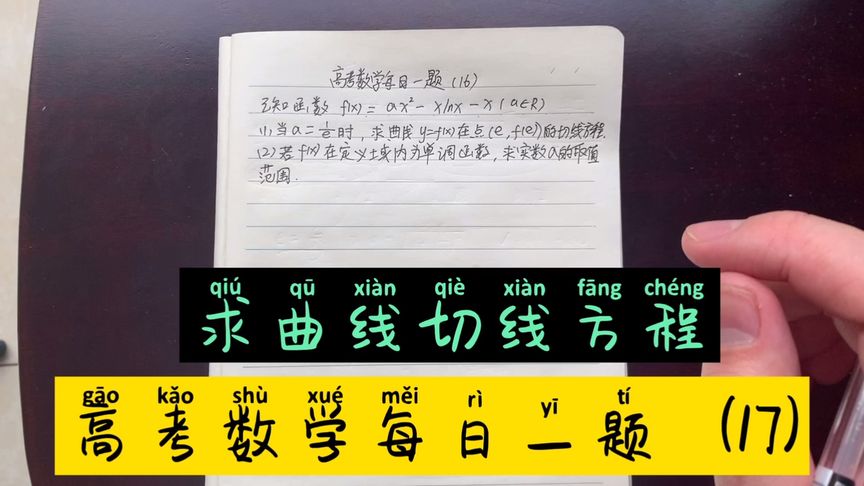 高考数学每日一题(16)
已知函数 f(x) = ax² - xlnx - x (a∈R)
(1)当 a = 1/e 时, 求曲线 y=f(x)在点(e, f(e))的切线方程.
(2)若 f(x)在定义域内为单调函数, 求实数a的取值
范围.
qiú qū xiàn qiè xiàn fāng chéng
求曲线切线方程
gāo kǎo shù xué měi rì yī tí
高考数学每日一题 (17)